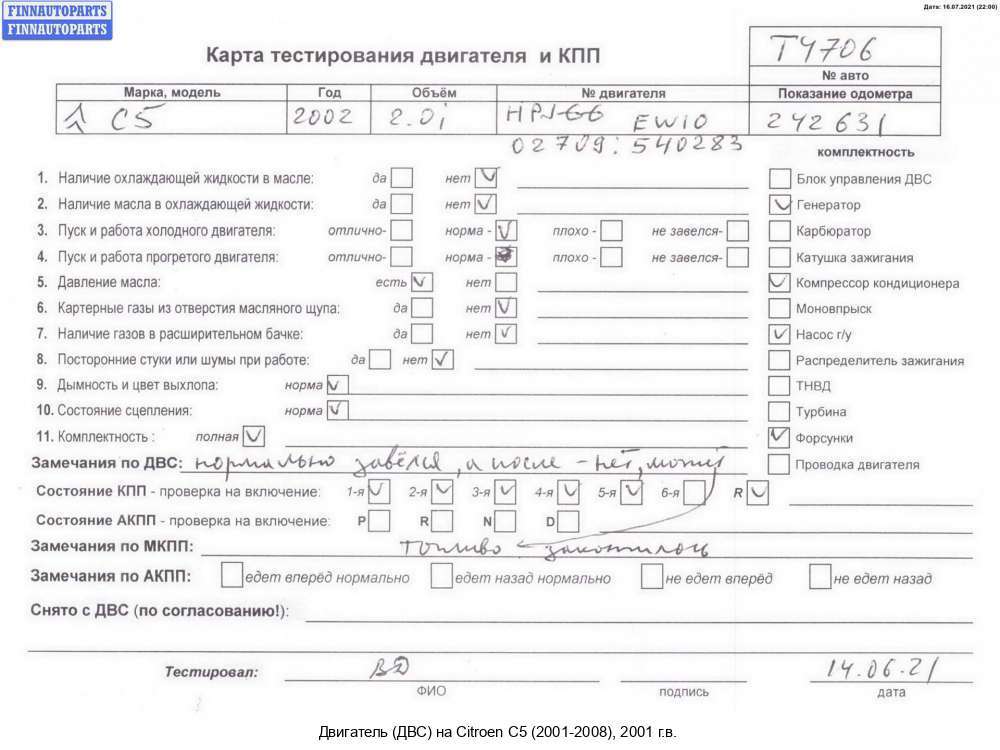 FINNAUTOPARTS
FINNAUTOPARTS
Дата: 16.07.2021 (22:00)
Карта тестирования двигателя и КПП
TY706
№ авто
Марка, модель Год Объём № двигателя Показание одометра
C5 2002 2.0i EW10 242631
02709: 540283
комплектность
1. Наличие охлаждающей жидкости в масле: да нет Блок управления ДВС
2. Наличие масла в охлаждающей жидкости: да нет Генератор
3. Пуск и работа холодного двигателя: отлично- норма - плохо - не завелся- Карбюратор
4. Пуск и работа прогретого двигателя: отлично- норма - плохо - не завелся- Катушка зажигания
5. Давление масла: есть нет Компрессор кондиционера
6. Картерные газы из отверстия масляного щупа: да нет Моновпрыск
7. Наличие газов в расширительном бачке: да нет Насос г/у
8. Посторонние стуки или шумы при работе: да нет Распределитель зажигания
9. Дымность и цвет выхлопа: норма ТНВД
10. Состояние сцепления: норма Турбина
11. Комплектность : полная Форсунки
Замечания по ДВС: нормально завёлся, а после - нет, может Проводка двигателя
Состояние КПП - проверка на включение: 1-я 2-я 3-я 4-я 5-я 6-я R
Состояние АКПП - проверка на включение: P R N D
Замечания по МКПП: топливо закончилось
Замечания по АКПП: едет вперёд нормально едет назад нормально не едет вперёд не едет назад
Снято с ДВС (по согласованию!):
Тестировал: ВД 14.06.21
ФИО подпись дата
Двигатель (ДВС) на Citroen C5 (2001-2008), 2001 г.в.